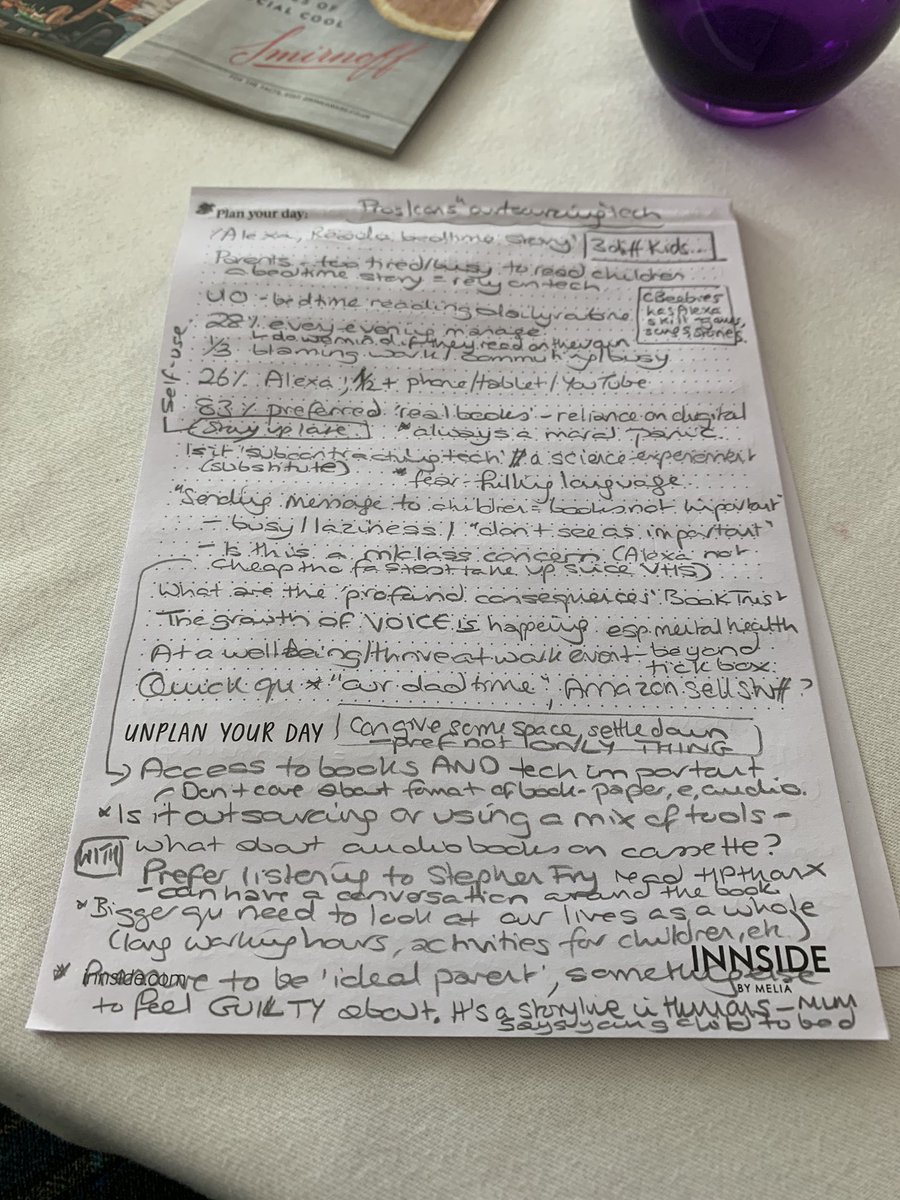 SOCIAL COOL
Smirnoff
FOR THE FACTS, VISIT DRINKAWARE.CO.UK
* Plan your day: Pros/cons "outsourcing" tech
'Alexa, Read a bedtime story' 3 diff kids...
Parents - too tired/busy to read children
a bedtime story = rely on tech
CBeebies
has Alexa
skill games,
songs, stories.
- bedtime reading daily routine
28% every evening manage
↳ do we mind if they read on their own
1/3 blaming work/commuting/busy
Self-use
26% Alexa; 1/2 + phone/tablet/YouTube
83% preferred 'real books' - reliance on digital
Stay up late * always a moral panic
Is it 'subcontracting tech' // a science-experiment
(substitute) * fear-filling language
"Sending message to children = books not important"
- busy/laziness/ "don't see as important"
- Is this a m/class concern (Alexa not
cheap tho fastest take up since VHS)
What are the 'profound consequences' BookTrust
The growth of VOICE is happening esp. mental health
At a wellbeing/thrive at work event - beyond
tick box.
Quick qu * "our dad time", Amazon sell stuff?
UNPLAN YOUR DAY / Can give some space, settle down
- pref not ONLY THING
↳ Access to books AND tech important
Don't care about format of book - paper, e, audio.
* Is it outsourcing or using a mix of tools -
WITH what about audiobooks on cassette?
Prefer listening to Stephen Fry read HP than x
- can have a conversation around the book
* Bigger qu need to look at our lives as a whole
(long working hours, activities for children, etc)
INNSIDE
BY MELIA
innside.com
* to be 'ideal parent', something else
to feel GUILTY about. It's a storyline in Humans - Mum
says young child to bed